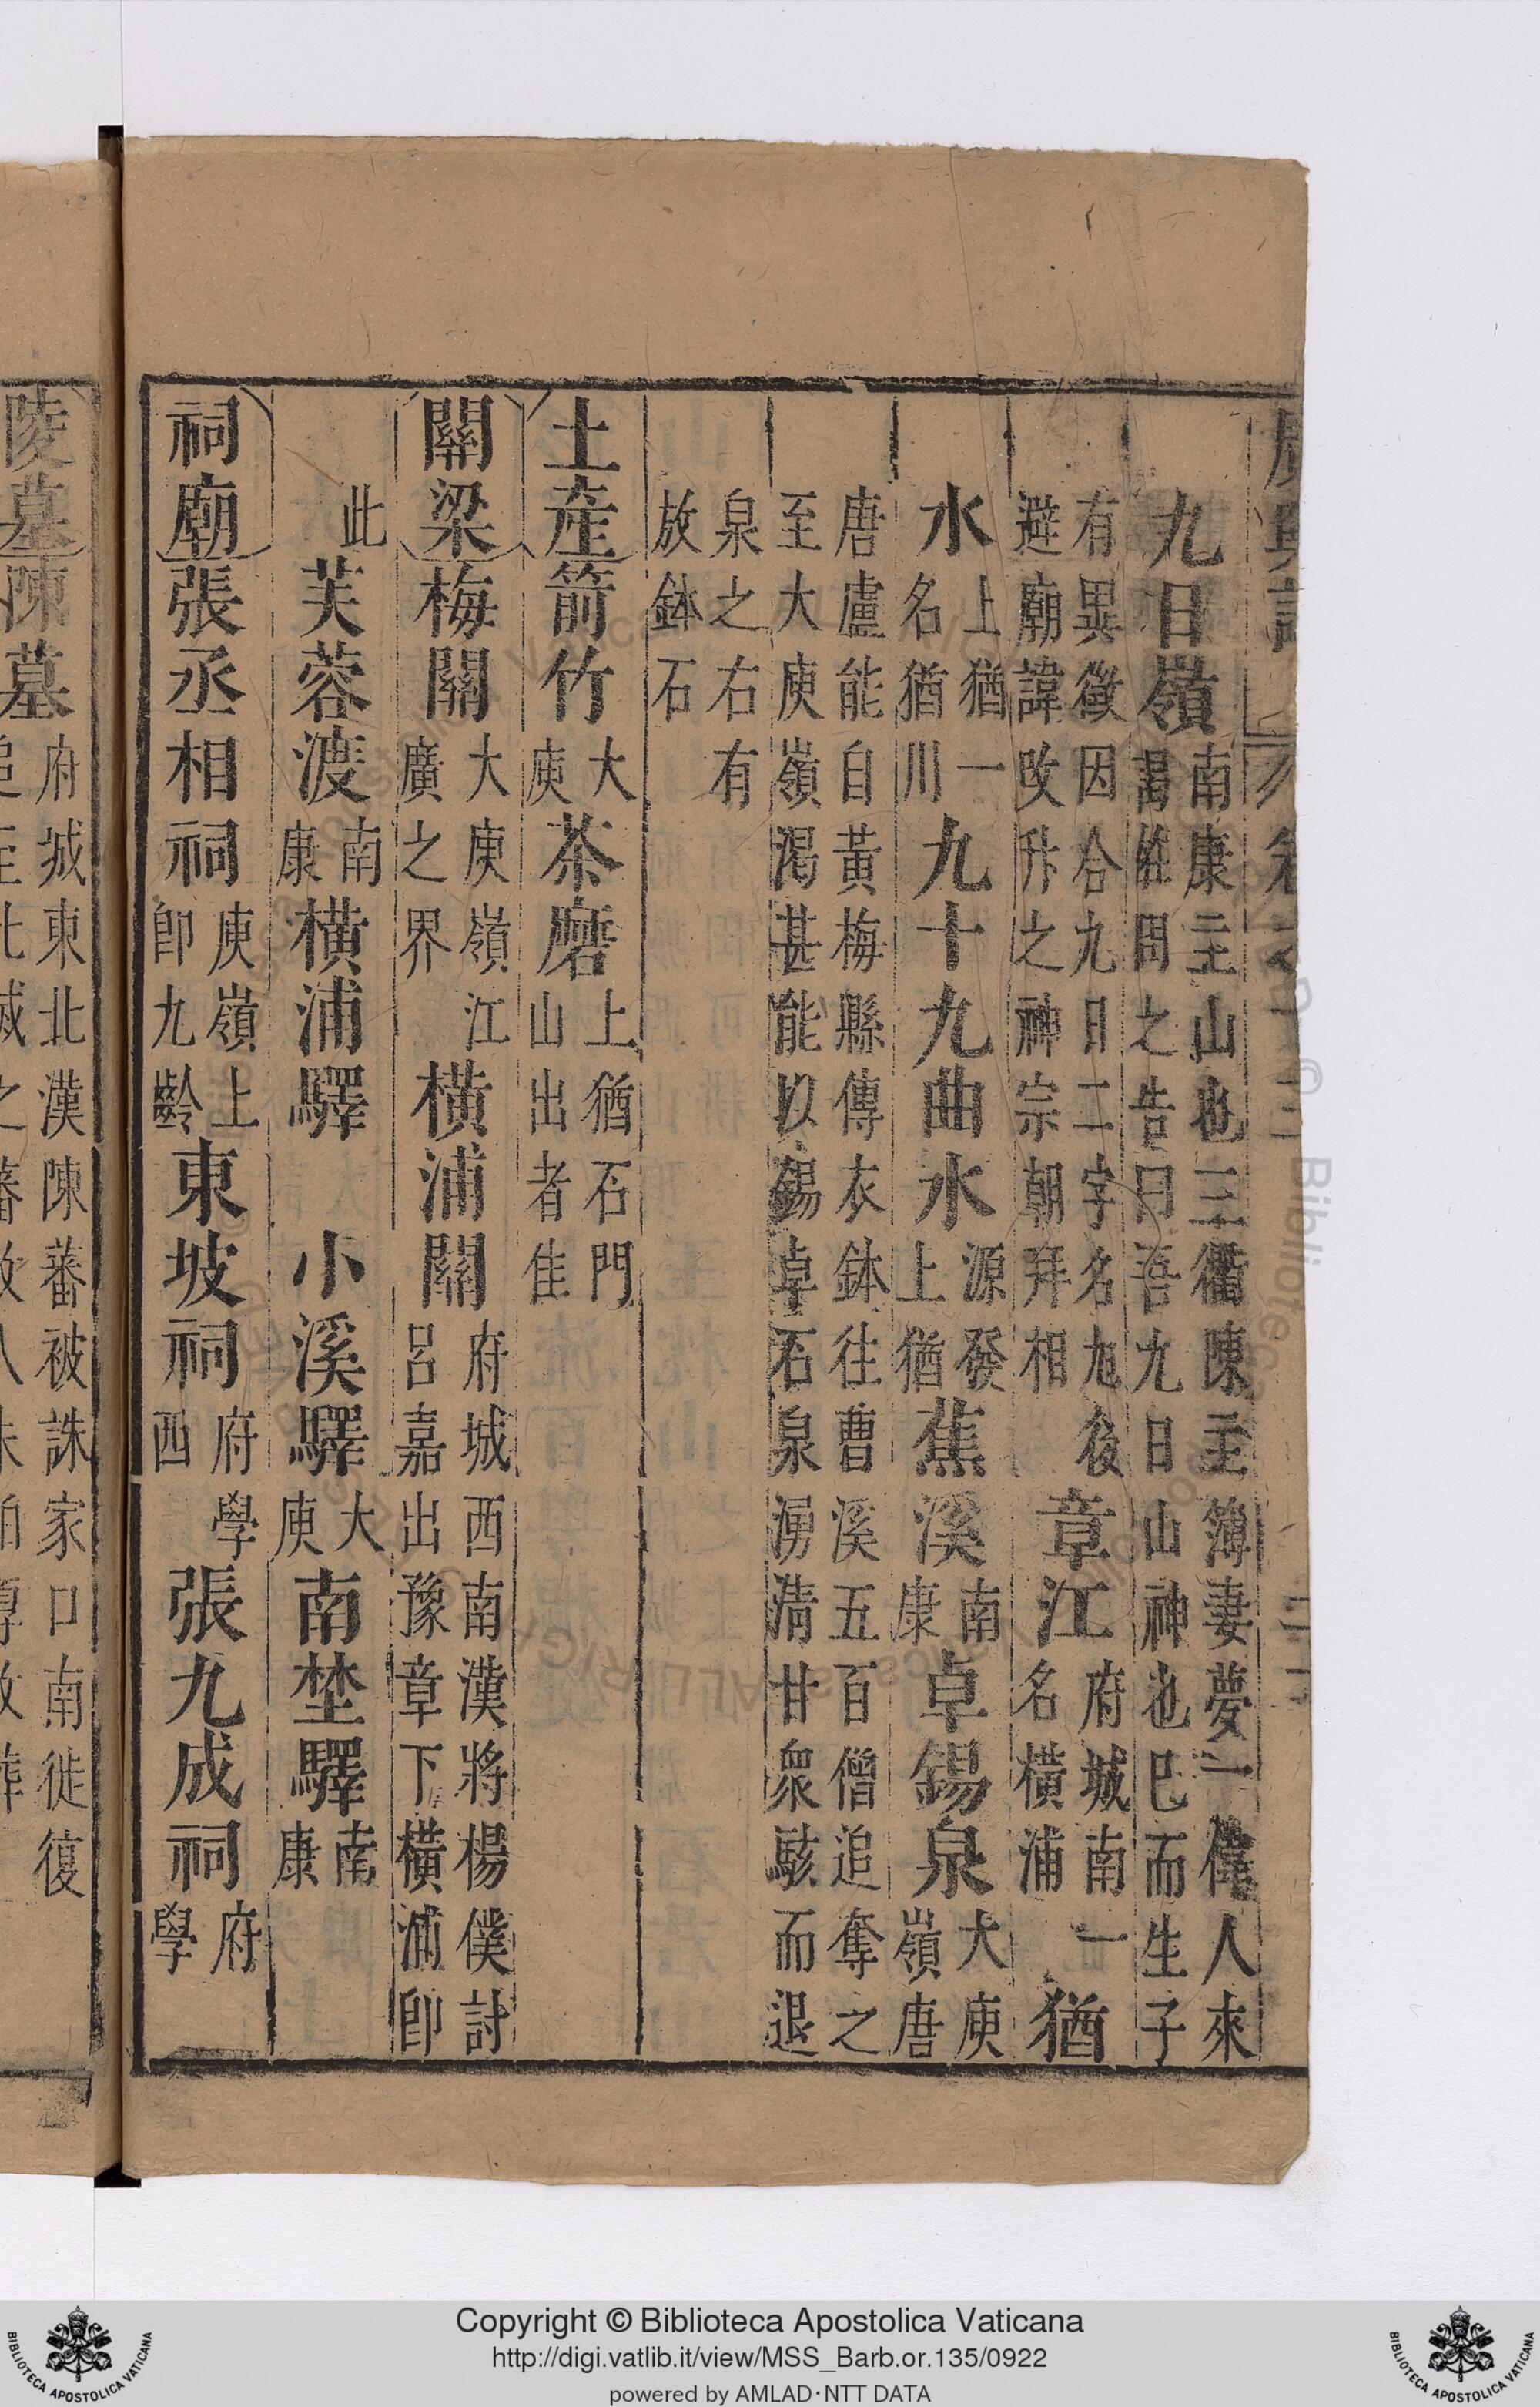 廣輿記 卷之
九日嶺南康主山也三衢陳主簿妻夢一偉人來
謁 問之告曰吾九日山神也巳而生子
有異徵因合九日二字名旭後
避廟諱改升之神宗朝拜相
章江府城南一
名橫浦
猶
水上猶一
名猶川
九十九曲水源發
上猶
蕉溪南
康
卓錫泉大庾
嶺唐
唐盧能自黃梅縣傳衣鉢往曹溪五百僧追奪之
至大庾嶺渴甚能以錫卓石泉湧清甘眾駭而退
泉之右有
放鉢石
土産箭竹大
庾
茶磨上猶石門
山出者佳
關梁梅關大庾嶺江
廣之界
橫浦關府城西南漢將楊僕討
呂嘉出豫章下橫浦即
此
芙蓉渡南
康
橫浦驛
小溪驛大
庾
南埜驛南
康
祠廟張丞相祠庾嶺上
即九齡
東坡祠府學
西
張九成祠府
學
陵墓陳墓府城東北漢陳蕃被誅家口南徙復
Copyright © Biblioteca Apostolica Vaticana
http://digi.vatlib.it/view/MSS_Barb.or.135/0922
powered by AMLAD·NTT DATA
BIBLIOTECA APOSTOLICA VATICANA
BIBLIOTECA APOSTOLICA VATICANA